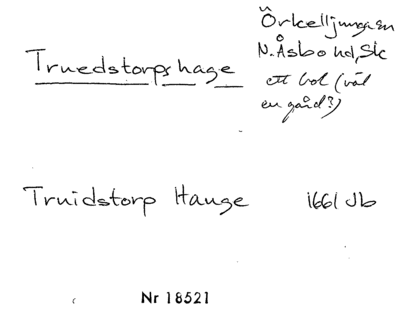 Örkelljungaen
Truedstorps hage N. Åsbo hd, Sk
ett bol (väl
en gård?)
Truidstorp Hauge 1661 Jb
Nr 18521